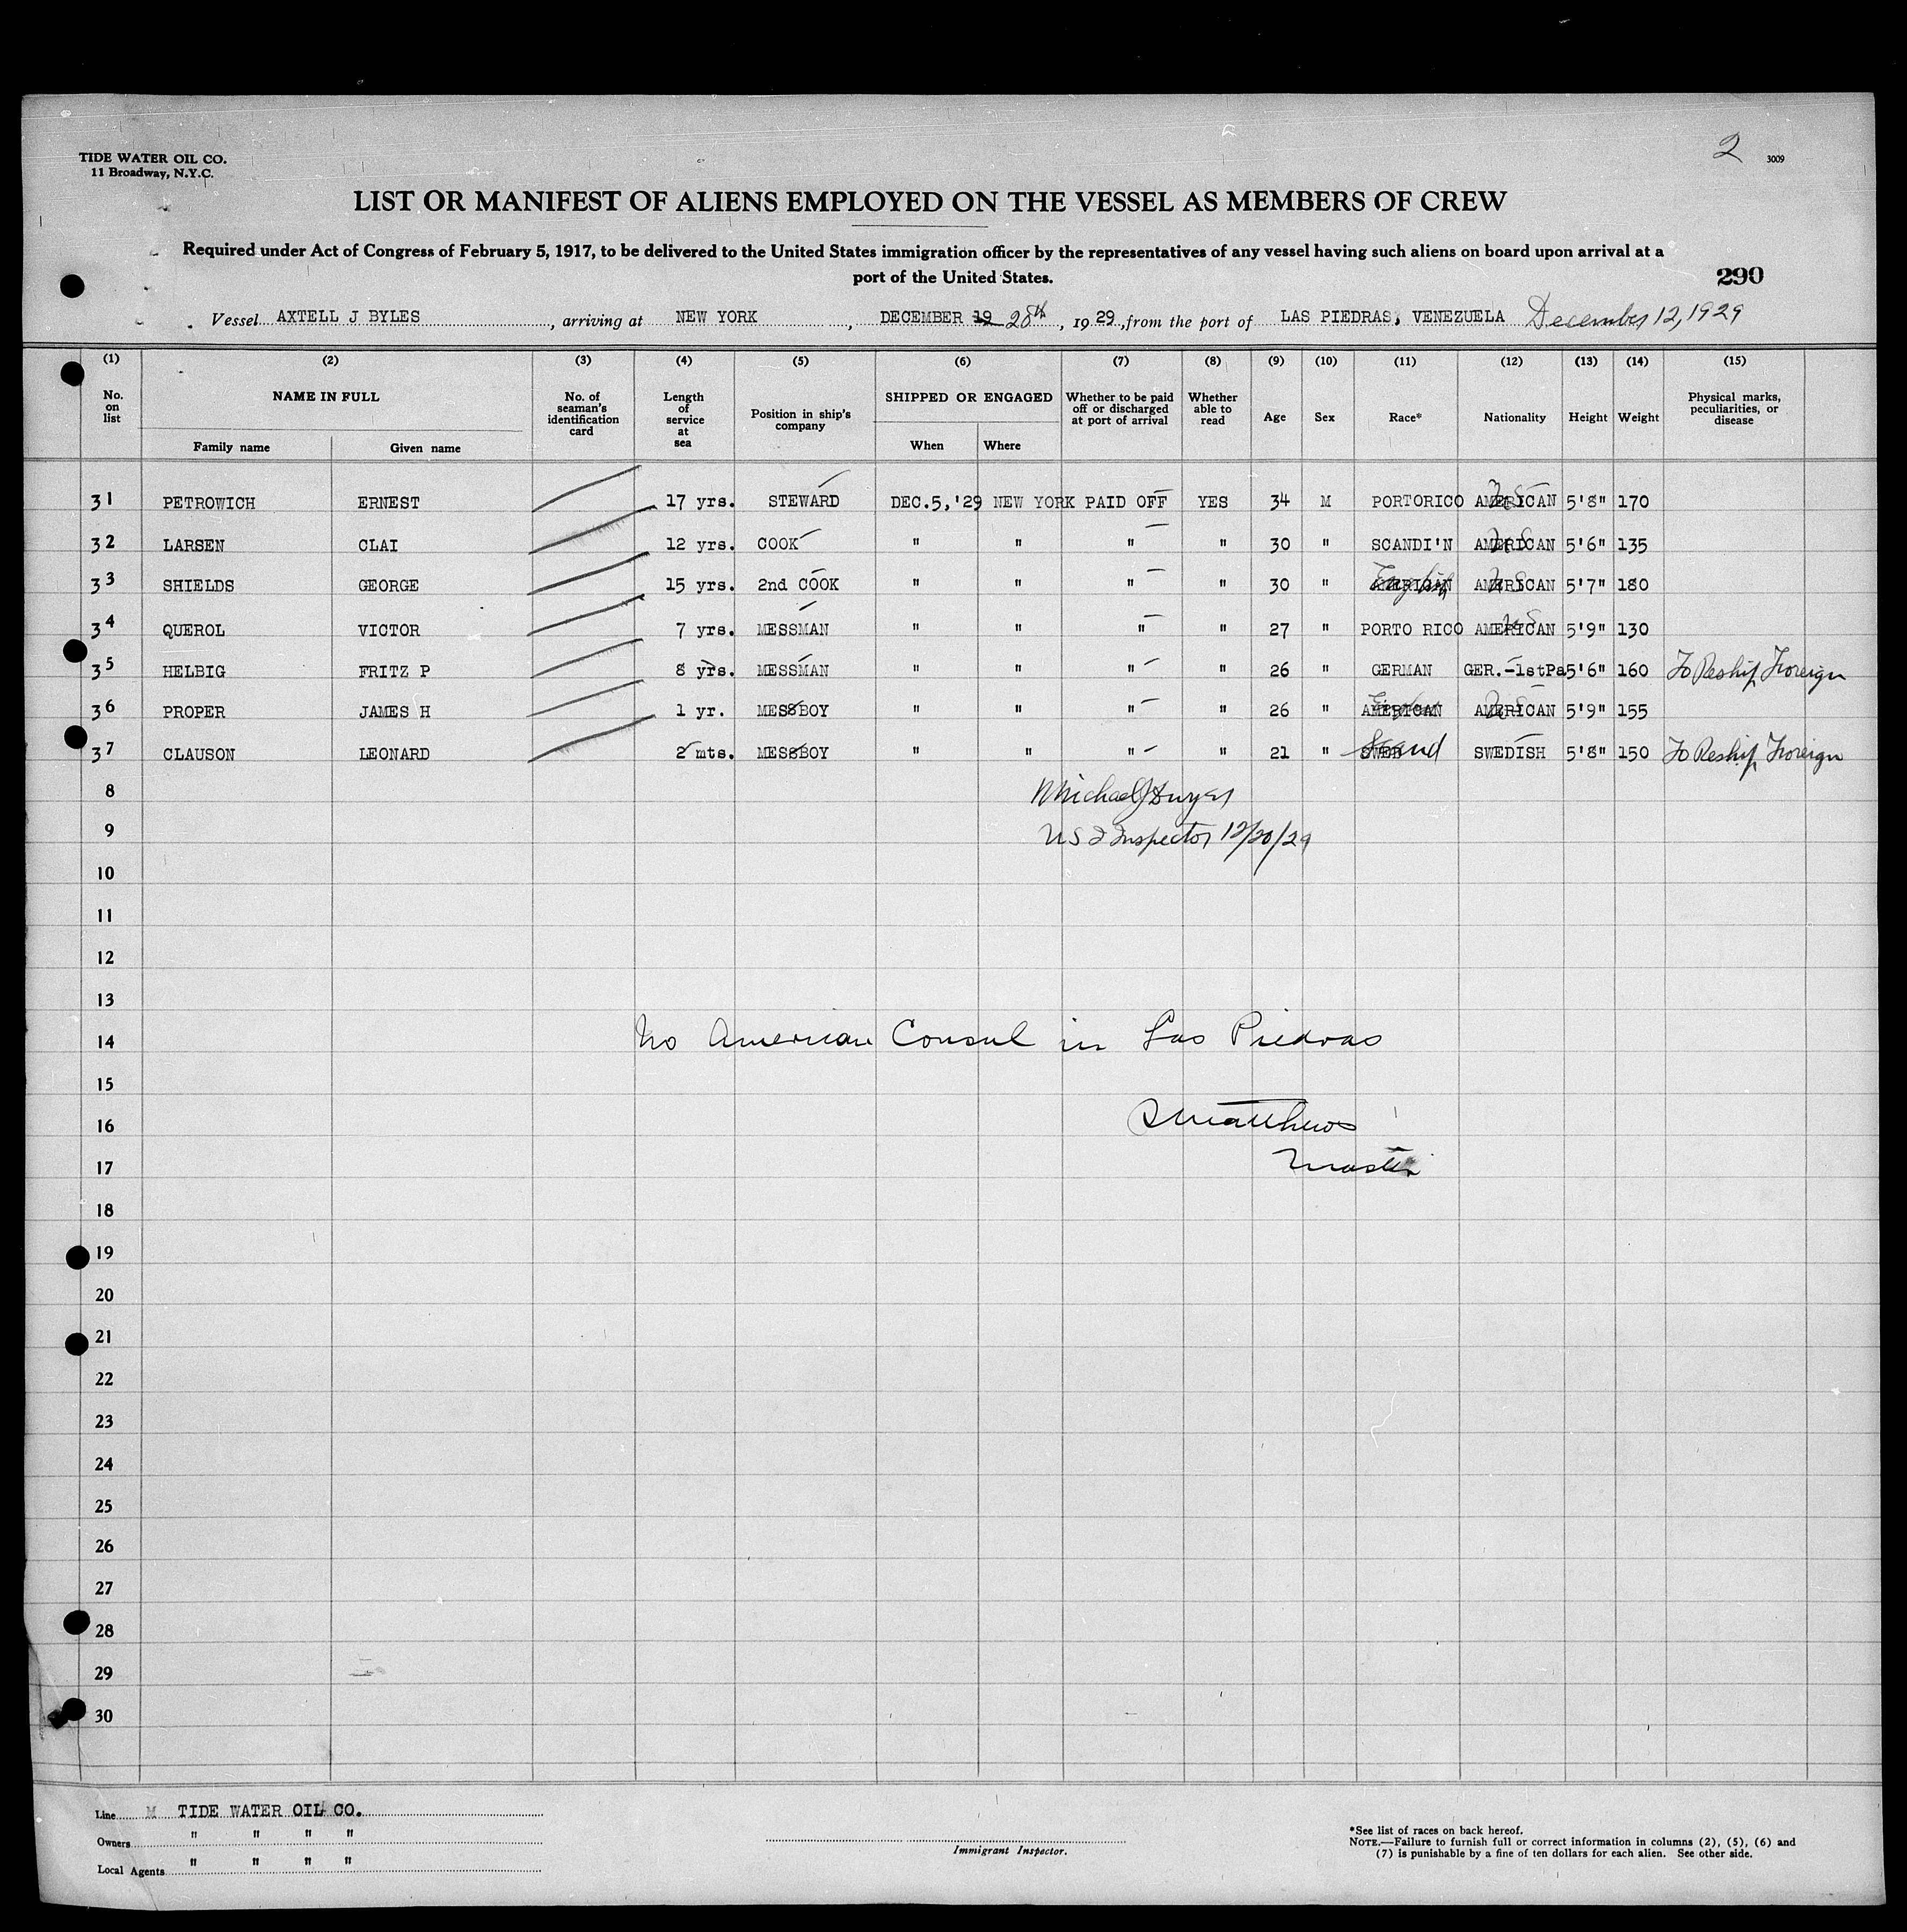 TIDE WATER OIL CO.
11 Broadway, N.Y.C.
2 3009
LIST OR MANIFEST OF ALIENS EMPLOYED ON THE VESSEL AS MEMBERS OF CREW
Required under Act of Congress of February 5, 1917, to be delivered to the United States immigration officer by the representatives of any vessel having such aliens on board upon arrival at a
port of the United States.
290
Vessel AXTELL J BYLES, arriving at NEW YORK, DECEMBER 19 20th, 1929, from the port of LAS PIEDRAS, VENEZUELA December 12, 1929
(1) (2) (3) (4) (5) (6) (7) (8) (9) (10) (11) (12) (13) (14) (15)
No. on list NAME IN FULL Family name Given name No. of seaman's identification card Length of service at sea Position in ship's company SHIPPED OR ENGAGED When Where Whether to be paid off or discharged at port of arrival Whether able to read Age Sex Race* Nationality Height Weight Physical marks, peculiarities, or disease
31 PETROWICH ERNEST 17 yrs. STEWARD DEC.5,'29 NEW YORK PAID OFF YES 34 M PORTORICO AMERICAN US 5'8" 170
32 LARSEN CLAI 12 yrs. COOK " " " " 30 " SCANDI'N AMERICAN US 5'6" 135
33 SHIELDS GEORGE 15 yrs. 2nd COOK " " " " 30 " AMERICAN English AMERICAN US 5'7" 180
34 QUEROL VICTOR 7 yrs. MESSMAN " " " " 27 " PORTO RICO AMERICAN US 5'9" 130
35 HELBIG FRITZ P 8 yrs. MESSMAN " " " " 26 " GERMAN GER.-1stPa 5'6" 160 To Reship Foreign
36 PROPER JAMES H 1 yr. MESSBOY " " " " 26 " AMERICAN English AMERICAN US 5'9" 155
37 CLAUSON LEONARD 2 mts. MESSBOY " " " " 21 " Scand SWEDISH 5'8" 150 To Reship Foreign
8 Michael J Dwyer
9 US I Inspector 12/20/29
10
11
12
13
14 No American Consul in Las Piedras
15
16 Matthews
17 Master
18
19
20
21
22
23
24
25
26
27
28
29
30
Line TIDE WATER OIL CO.
Owners " " " "
Local Agents " " " "
Immigrant Inspector.
*See list of races on back hereof.
NOTE.—Failure to furnish full or correct information in columns (2), (5), (6) and
(7) is punishable by a fine of ten dollars for each alien. See other side.